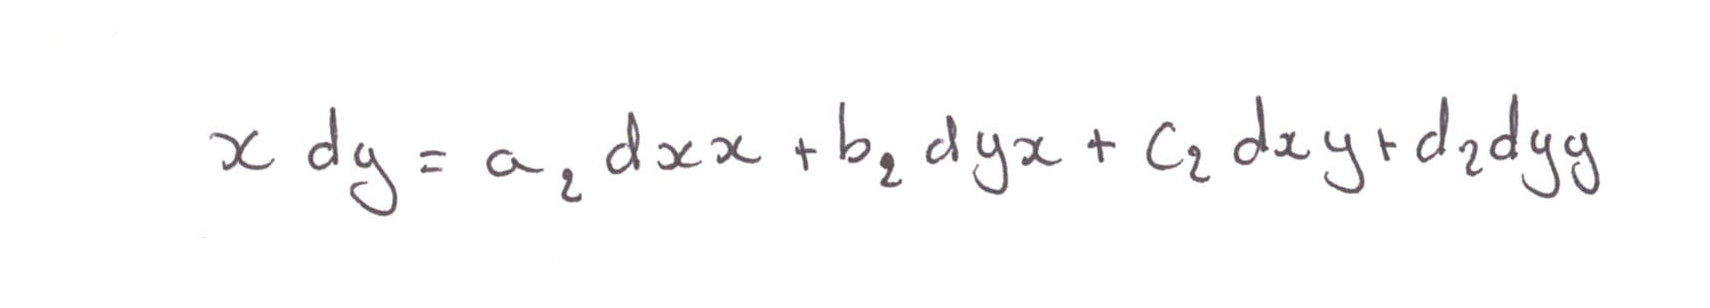 x dy = a₂ dxx + b₂ dyx + c₂ dxy + d₂dyy